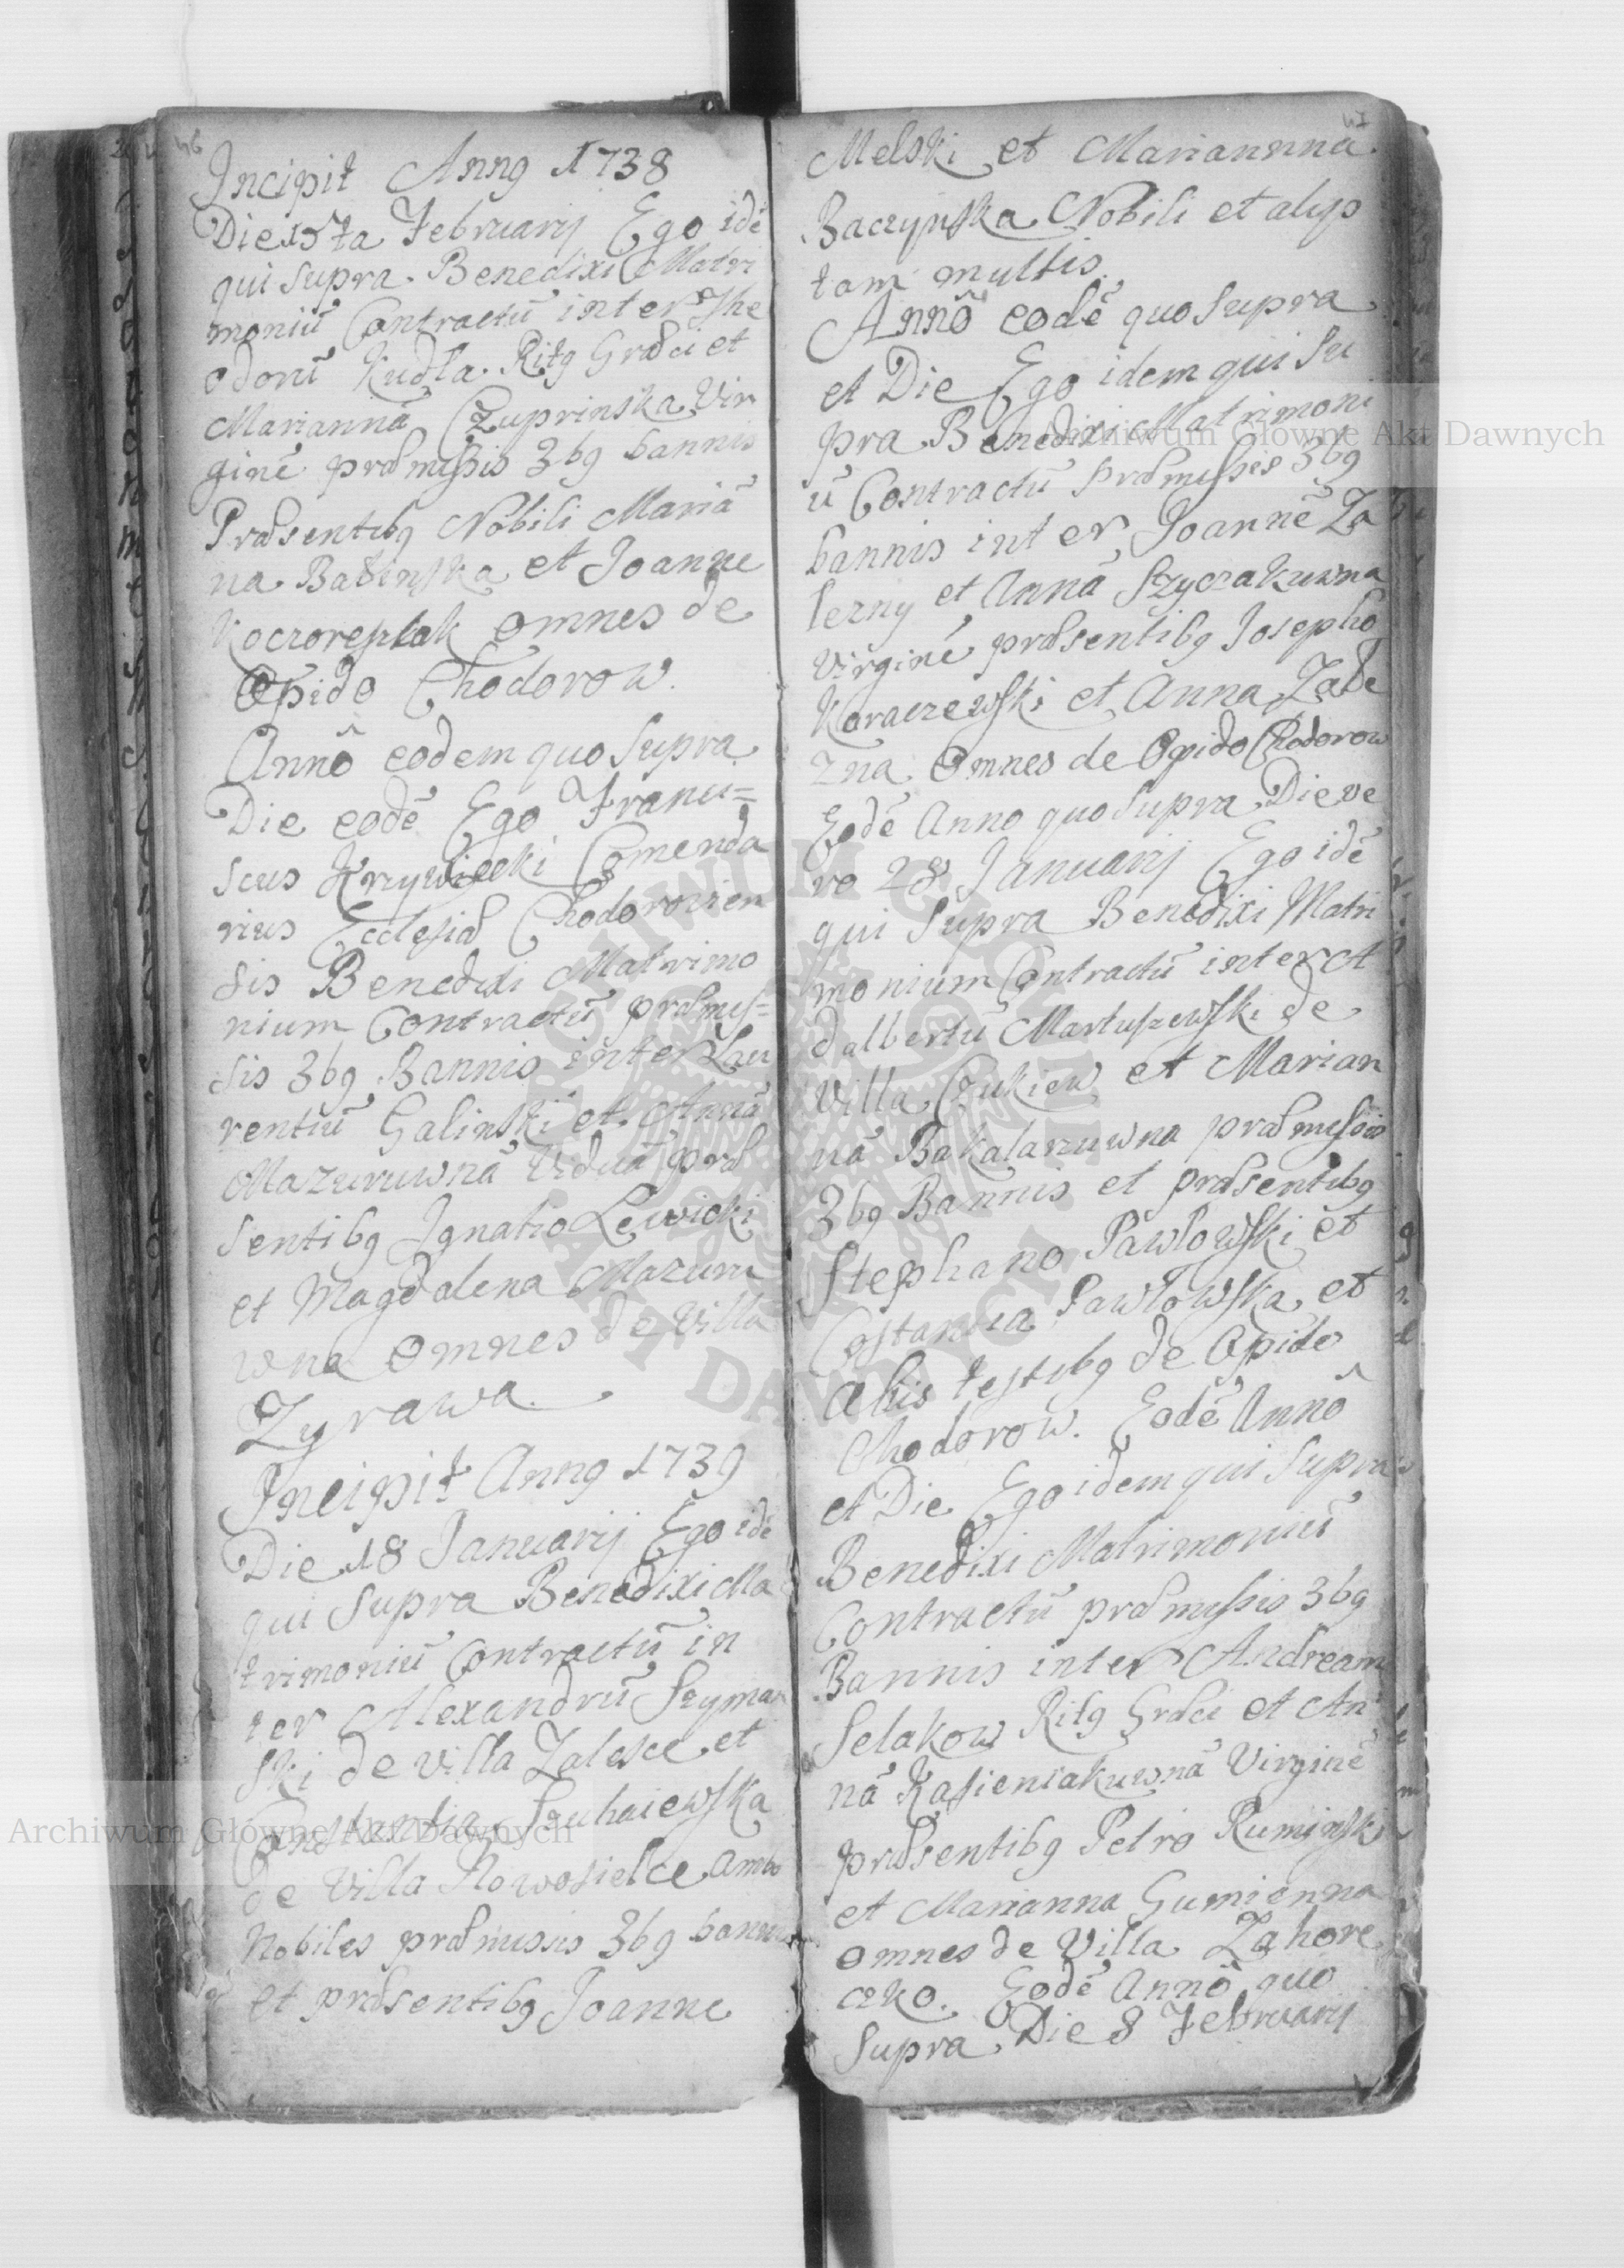 46
Incipit Anng 1738
Die 15ta Februarij Ego idē
qui supra Benedixi Matri
moniū Contractū inter The
odorū Kudła Ritg Græci et
Mariannā Czuprinska Vir
ginē præmissis 3bg bannis
Præsentibg Nobili Mariā
na Babinska et Joanne
omnes de
Opido Chodorow.
Annô eodem quo supra
Die eodē Ego Franci=
scus Krzywiecki Comenda
rius Ecclesiæ Chodorovien
sis Benedixi Matrimo
nium Contractū præmis=
sis 3bg Bannis inter Lau
rentiū Galinski et Annā
Mazuruwnā Viduā præ
sentibg Ignatio Lewicki
et Magdalena Mazuru
wna omnes de Villa
Zyrawa.
Incipit Anng 1739
Die 18 Januarij Ego idē
qui supra Benedixi Ma
trimoniū Contractū in
ter Alexandrū Szyman
ski de Villa Zalesce et
Constantia Szuhaiewska
de Villa Nowosielce ambo
Nobiles præmissis 3bg bannis
et præsentibg Joanne
47
Melski et Mariannna
Baczynska Nobili et alijs
tam multis.
Annô eodē quo supra
et Die Ego idem qui su
pra Benedixi Matrimoni
ū Contractū præmissis 3bg
bannis inter Joannē Za
lezny et Annā Szyczakuwna
Virginē præsentibg Josepho
Karaczewski et Anna Zale
zna Omnes de Opido Chodorow
Eodē Anno quo supra Die ve
ro 28 Januarij Ego idē
qui supra Benedixi Matri
monium Contractū inter A
dalbertū Martuszewski de
Villa Czukiew et Marian
nā Bakalarzuwna præmissis
3bg Bannis et præsentibg
Stephano Pawłowski et
Costancia Pawłowska et
Aliis testibg de Opido
Chodorow. Eodē Annô
et Die Ego idem qui supra
Benedixi Matrimoniū
Contractū præmissis 3bg
Bannis inter Andream
Selakow Ritg Græci et An
nā Kasieniakuwnā Virginē
præsentibg Petro Ruminski
et Marianna Gumienna
omnes de Villa Zahore
czko. Eodē Annô quo
supra Die 8 Februarij
Archiwum Główne Akt Dawnych
Archiwum Główne Akt Dawnych
ARCHIWUM GŁÓWNE AKT DAWNYCH